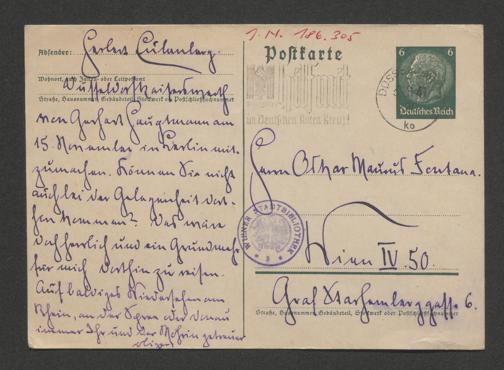 I.N. 186.305
Absender: Herbert Eulenberg.
Wohnort, auch Zustell- oder Leitpostamt
Düsseldorf Kaiserswerth
Straße, Hausnummer, Gebäudeteil, Stockwerk od. Postschließfachnummer
von Gerhart Hauptmann am
15. November in Berlin mit-
zumachen. Können Sie nicht
auch bei der Gelegenheit dort-
hin kommen? Das wäre
doch herrlich und ein Grund mehr
für mich dorthin zu reisen.
Auf baldiges Wiedersehen am
Rhein, an der Spree oder Donau
immer Ihr und der Mohrin getreuer
Postkarte
im Deutschen Roten Kreuz!
DÜSS
ko
6 6
Deutsches Reich
Herrn Oskar Maurus Fontana.
WIENER STADTBIBLIOTHEK
Wien IV. 50.
Graf Starhemberggasse 6.
Straße, Hausnummer, Gebäudeteil, Stockwerk oder Postschließfachnummer